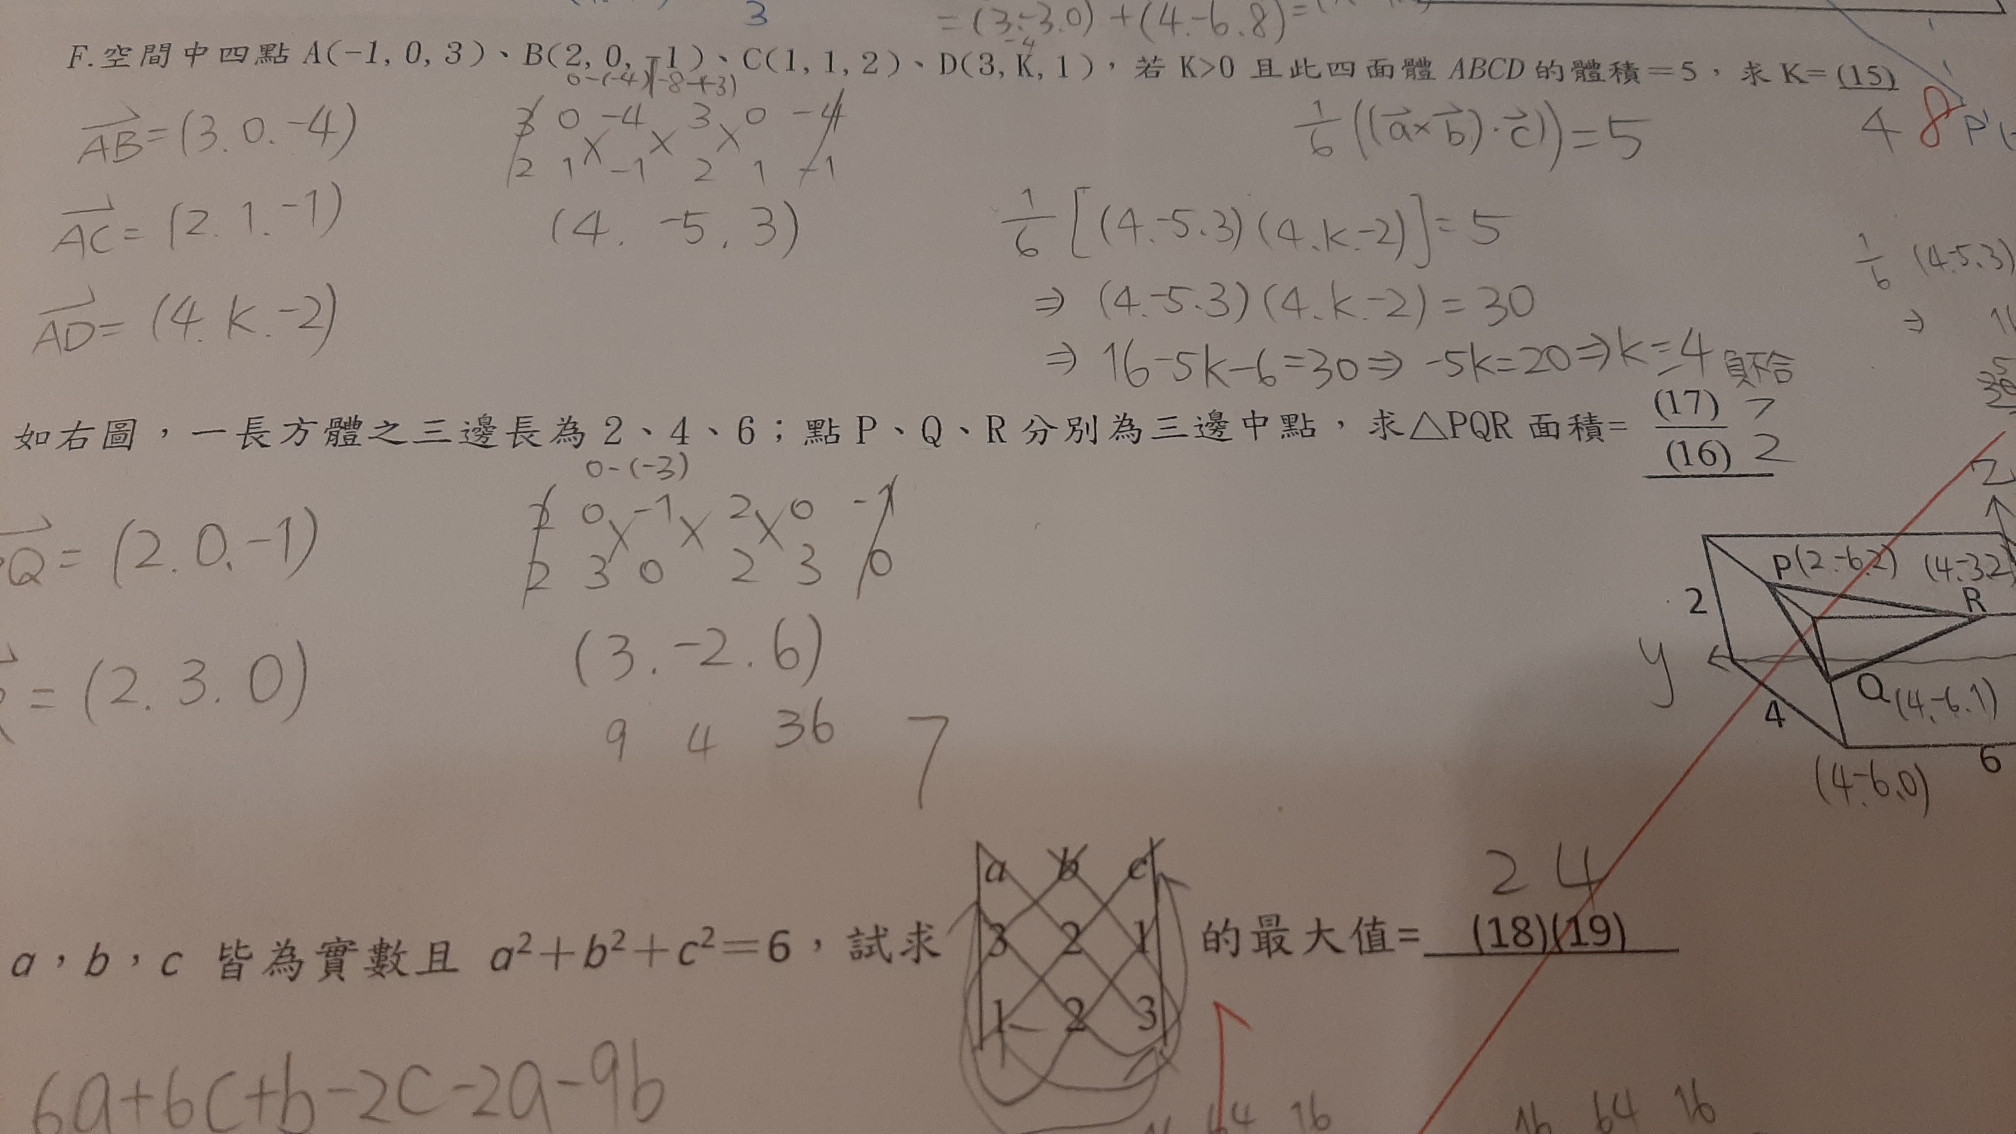 3
= (3.-3.0) + (4.-6.8) =
-4
F.空間中四點 A(-1, 0, 3)、B(2, 0, -1)、C(1, 1, 2)、D(3, K, 1)，若 K>0 且此四面體 ABCD 的體積=5，求 K= (15)
0-(-4) (-8+3)
4 8 P'(
AB=(3.0.-4)
3 0 -4 3 0 -4
2 1 -1 2 1 -1
1/6 ((a×b)·c)=5
AC=(2.1.-1)
(4. -5. 3)
1/6 [(4.-5.3)(4.k.-2)]=5
1/6 (4.-5.3)
AD=(4.k.-2)
⇒ (4.-5.3)(4.k.-2)=30
⇒
⇒ 16-5k-6=30⇒ -5k=20⇒k=-4 負不合
如右圖，一長方體之三邊長為 2、4、6；點 P、Q、R 分別為三邊中點，求△PQR 面積= (17) 7
(16) 2
0-(-3)
Q=(2.0.-1)
2 0 -1 2 0 -1
2 3 0 2 3 0
Z
P(2.-6.2) (4.-3.2)
2 R
=(2.3.0)
(3.-2.6)
y
Q(4.-6.1)
4
9 4 36 7
6
(4.-6.0)
2 4
a，b，c 皆為實數且 a²+b²+c²=6，試求 |a b c|
|3 2 1| 的最大值= (18)(19)
|1 2 3|
6a+6c+b-2c-2a-9b
64 16
16 64 16